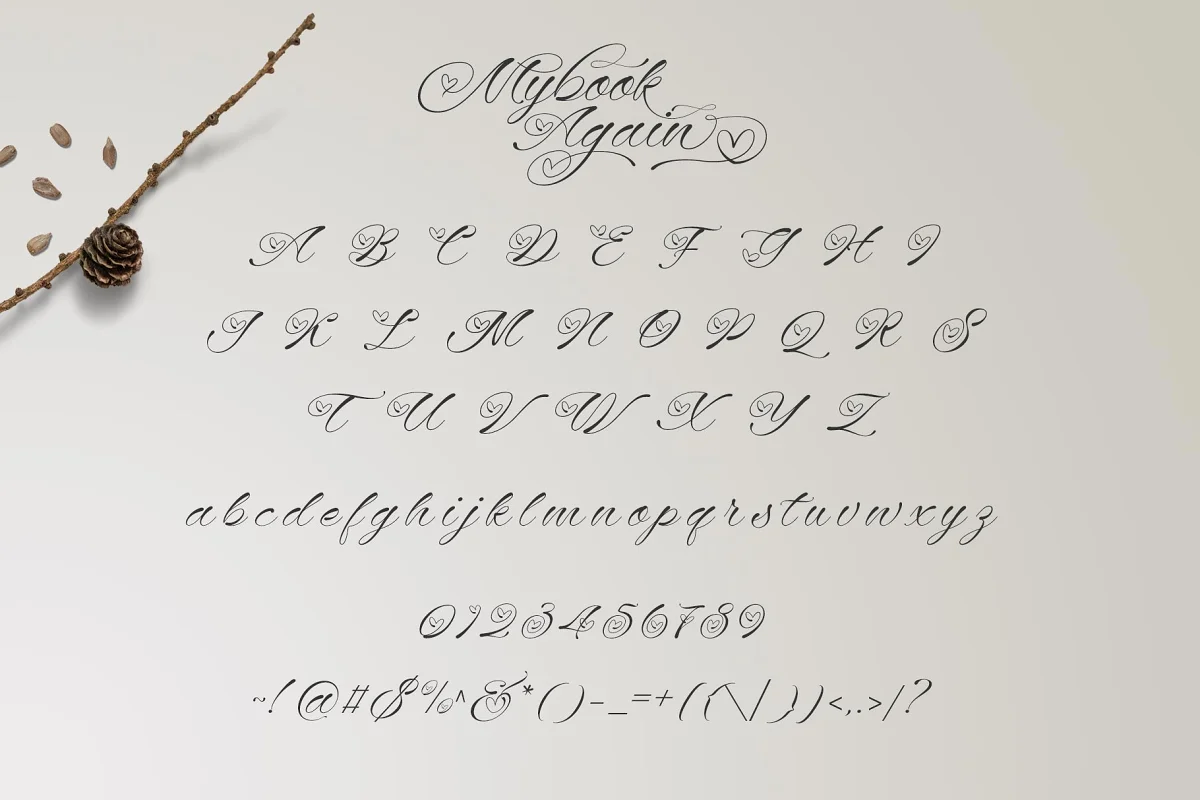 Mybook
Again
A B C D E F G H I
J K L M N O P Q R S
T U V W X Y Z
abcdefghijklmnopqrstuvwxyz
0123456789
~!@#$%^&*()-_=+({\|})<,.>/?